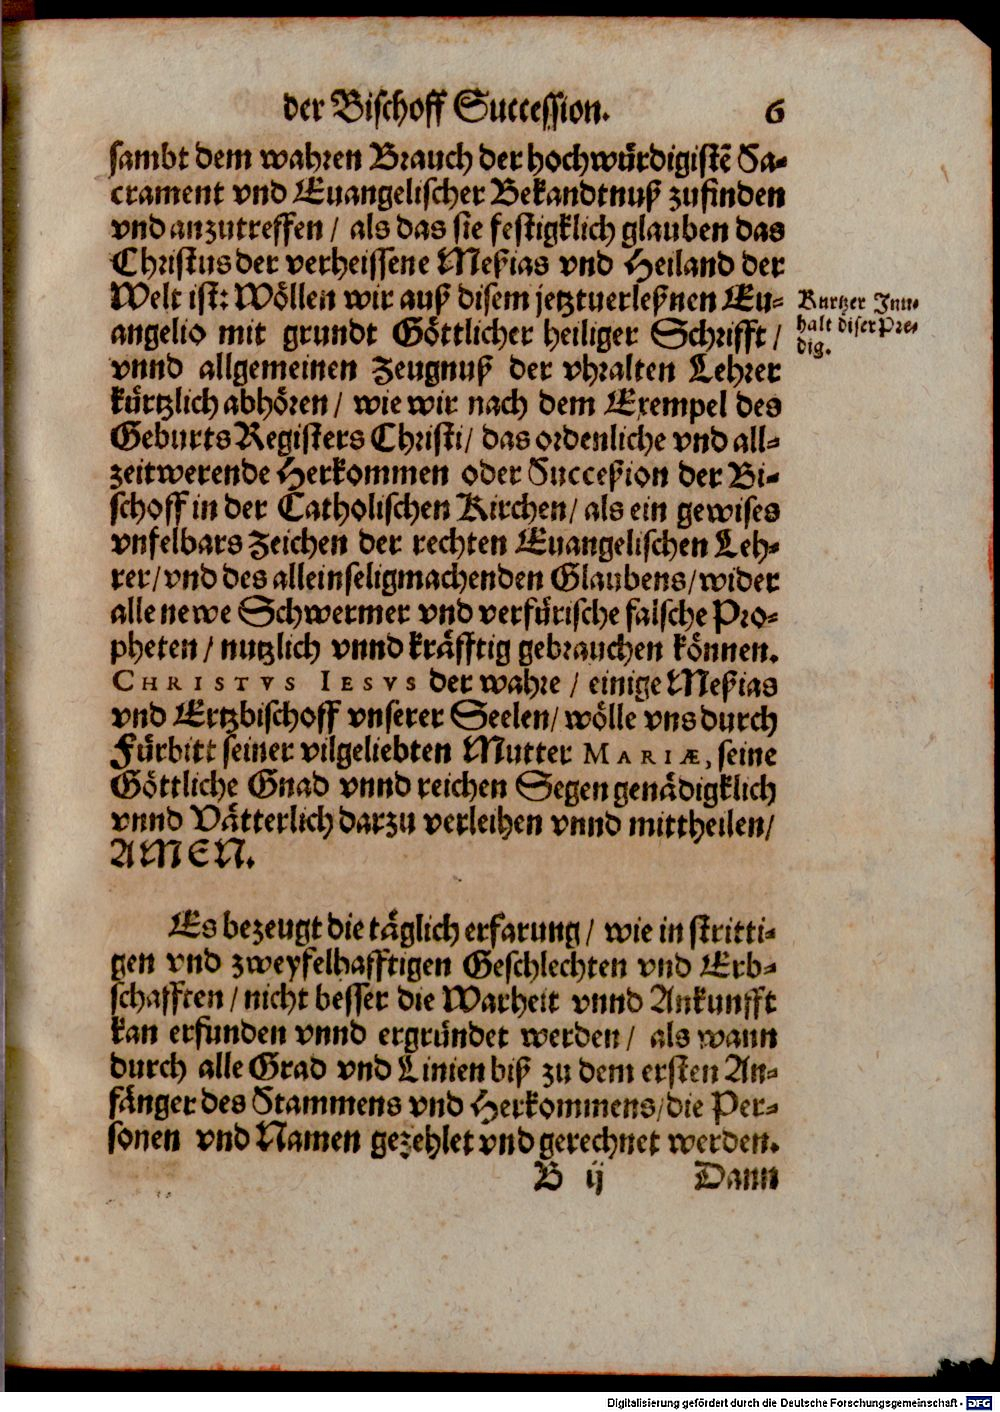 der Bischoff Succession. 6
sambt dem wahren Brauch der hochwürdigistē Sa-
crament vnd Euangelischer Bekandtnuß zufinden
vnd anzutreffen / als das sie festigklich glauben das
Christus der verheissene Meßias vnd Heiland der
Welt ist: Wöllen wir auß disem jetztuerleßnen Eu-
angelio mit grundt Göttlicher heiliger Schrifft /
vnnd allgemeinen Zeugnuß der vhralten Lehrer
kürtzlich abhören / wie wir nach dem Exempel des
Geburts Registers Christi / das ordenliche vnd all-
zeitwerende Herkommen oder Succeßion der Bi-
schoff in der Catholischen Kirchen / als ein gewises
vnfelbars Zeichen der rechten Euangelischen Leh-
rer / vnd des alleinseligmachenden Glaubens / wider
alle newe Schwermer vnd verfürische falsche Pro-
pheten / nutzlich vnnd kräfftig gebrauchen können.
CHRISTVS IESVS der wahre / einige Meßias
vnd Ertzbischoff vnserer Seelen / wölle vns durch
Fürbitt seiner vilgeliebten Mutter MARIÆ, seine
Göttliche Gnad vnnd reichen Segen genädigklich
vnnd Vätterlich darzu verleihen vnnd mittheilen /
AMEN.
Kurtzer Inn-
halt diser Pre-
dig.
Es bezeugt die täglich erfarung / wie in stritti-
gen vnd zweyfelhafftigen Geschlechten vnd Erb-
schafften / nicht besser die Warheit vnnd Ankunfft
kan erfunden vnnd ergründet werden / als wann
durch alle Grad vnd Linien biß zu dem ersten An-
fänger des Stammens vnd Herkommens / die Per-
sonen vnd Namen gezehlet vnd gerechnet werden.
B ij Dann
Digitalisierung gefördert durch die Deutsche Forschungsgemeinschaft - DFG